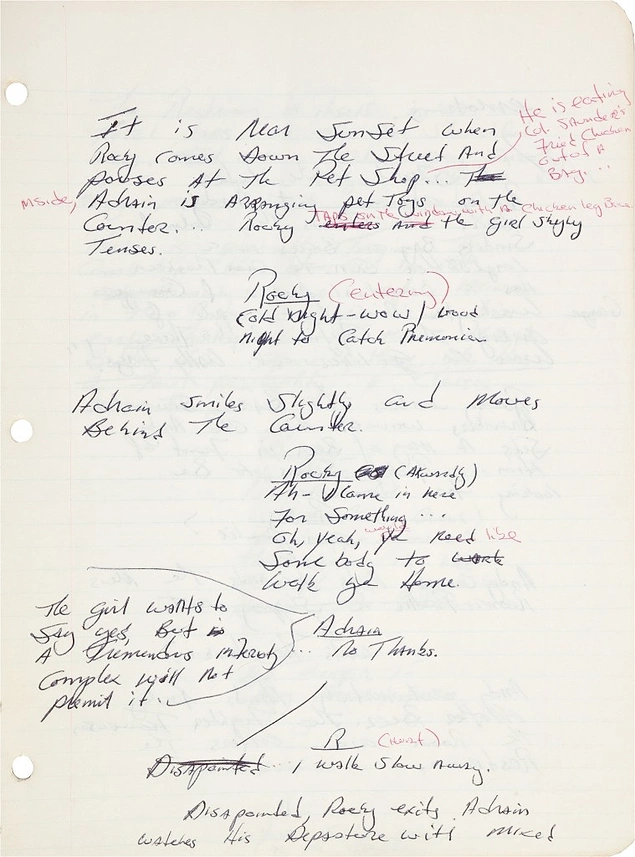 He is eating
Col. Saunders
Fried Chicken
out of A
BAg...
It is Near Sunset when
Rocky comes Down The Street And
pauses At The Pet Shop... The
Inside, Adrain is Arranging pet Toys on the
TAps on the window with A Chicken leg Bone
Counter... Rocky enters And the girl Shyly
Tenses.
Rocky (entering)
Cold Night - wow / Good
night to Catch Pneumonier
Adrain Smiles Slightly and Moves
Behind The Counter.
Rocky (Akwardly)
Ah - I Came in here
For Something ...
would
Oh, yeah, ya need like
Some body to work
Walk ya Home.
The girl wants to
Say yes, But is
A Tremendous inferiority
Complex will not
permit it.
Adrain
... No Thanks.
R (Hurt)
Disapointed ... I walk Slow Away.
Disapointed, Rocky exits. Adrain
watches His Departure with mixed